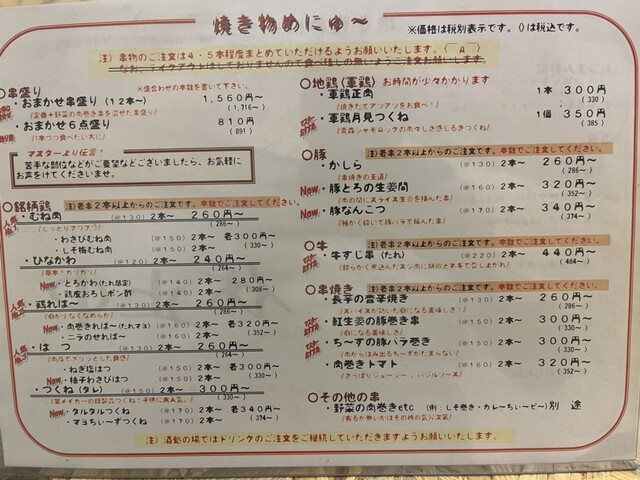 焼き物めにゅ～
※価格は税別表示です。()は税込です。
注）串物のご注文は４・５本程度まとめていただけるようお願いいたします。
なお、テイクアウトはしておりませんので食べ残しの無いようご注文お願いします。
○串盛り
※盛合わせの本数を書いて下さい。
・おまかせ串盛り（１２本～） 1,560円～
(1,716～)
・おまかせ６点盛り 810円
(891)
マスターより伝言！
苦手な部位などがご要望などございましたら、お気軽に
お声をけてくださいませ。
○銘柄鶏 注）若串２本以上からのご注文です。本数でご注文してください。
・むね肉 (@130) 2本～ 260円～
(286～)
・わさびむね肉 (@150) 2本～ 各300円～
・しそ梅むね肉 (@150) 2本～ (330～)
・ひなかわ (@120) 2本～ 240円～
(264～)
New ・とろかわ(たれ限定) (@140) 2本～ 280円～
・鶏皮おろしポン酢 (@140) 2本～ (308～)
・鶏ればー (@130) 2本～ 260円～
(286～)
New ・肉巻きればー(たれマヨ) (@160) 2本～ 各320円～
・ニラのせればー (@160) 2本～ (352～)
・はつ (@130) 2本～ 260円～
・ねぎ塩はつ (@150) 2本～ 各300円～
New ・柚子わさびはつ (@150) 2本～ (330～)
・つくね(タレ) (@150) 2本～ 300円～
(330～)
New ・タルタルつくね (@170) 2本～ 各340円～
・マヨちぃ～ずつくね (@170) 2本～ (374～)
○地鶏（軍鶏） お時間が少々かかります
・軍鶏正肉 1本 300円
(330)
/焼きたてアツアツをお食べ！/
・軍鶏月見つくね 1個 350円
(385)
/青森シャモロックの肉々しさ感じるきつくね/
○豚 注）若串２本以上からのご注文です。本数でご注文してください。
・かしら (@130) 2本～ 260円～
(286～)
/串焼きの王道/
New ・豚とろの生姜間 (@160) 2本～ 320円～
(352～)
/肉の間にスライス生姜を挟んだ串/
New ・豚なんこつ (@170) 2本～ 340円～
(374～)
○牛 注）若串２本以上からのご注文です。本数でご注文してください。
・牛すじ串(たれ) (@220) 2本～ 440円～
(484～)
○串焼き 注）若串２本以上からのご注文です。本数でご注文してください。
・長芋の雲芋焼き (@130) 2本～ 260円～
(286～)
・紅生姜の豚巻き串 (@150) 2本～ 300円～
(330～)
・ちーずの豚バラ巻き (@150) 2本～ 300円～
(330～)
・肉巻きトマト (@160) 2本～ 320円～
(352～)
○その他の串
・野菜の肉巻きetc (例：しそ巻き・カレ～ちぃ～ビ～) 別途
注）酒処の場ではドリンクのご注文をご継続していただきますようお願いします。